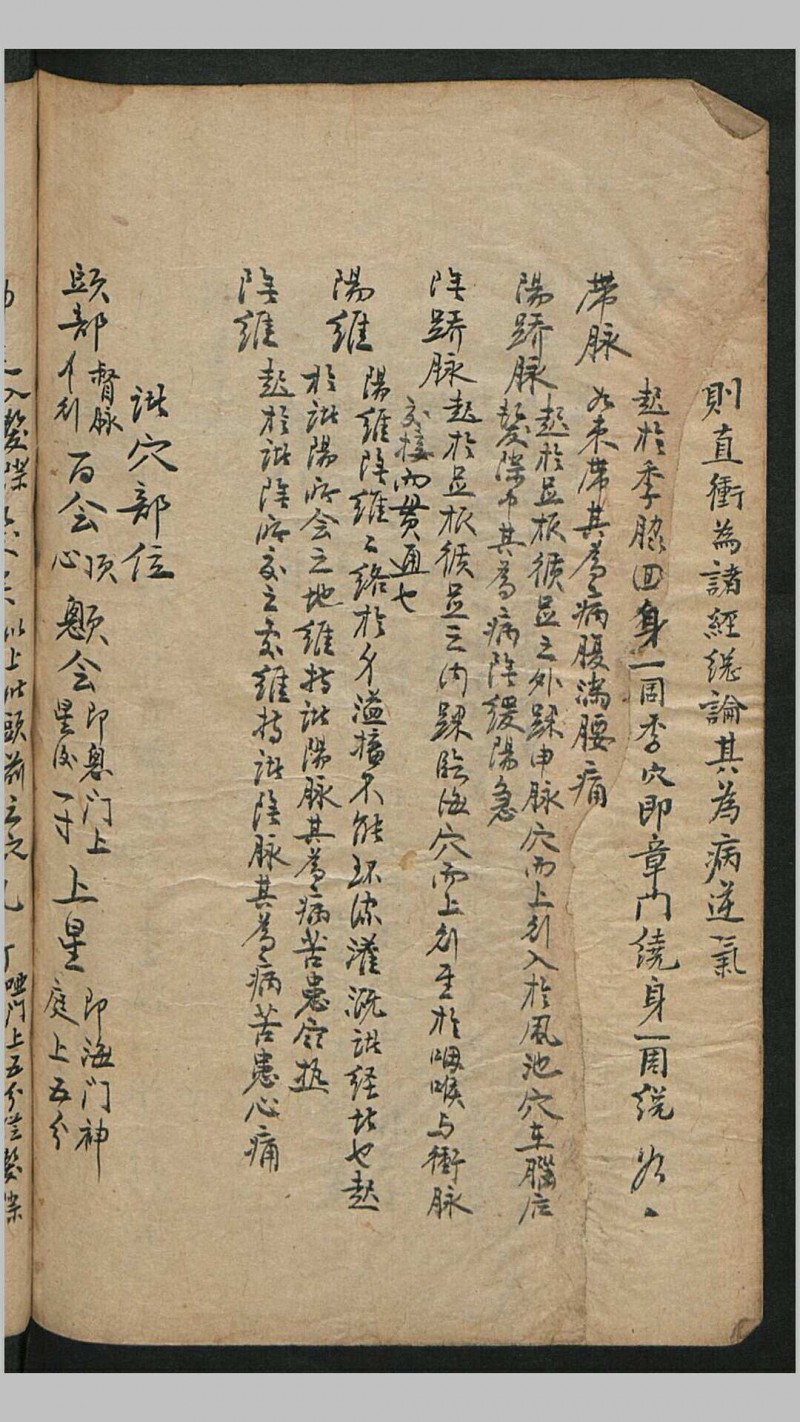 則直衝為諸經總論其為病逆氣
起於季脇回身一周季穴即章門繞身一周總如、
帶脉
如束帶其為病腹滿腰痛
陽蹻脉
起於足根循足之外踝申脉穴而上行入於風池穴在腦后
髮際中其為病陰緩陽急
陰蹻脉
起於足根循足之内踝照海穴而上行至於咽喉与衝脉
交接而貫通也
陽維
陽維陰維々絡於身溢擴不能环流灌溉諸経者也起
於諸陽所会之地維持諸陽脉其為病苦患寒熱
陰維
起於諸陰所交之處維持諸陰脉其為病苦患心痛
諸穴部位
頭部
督脉
百会
頂心
顖会
即囟门上星后一寸
上星
即海门神庭上五分
以上諸頭前之穴
哑门上五分
髮際